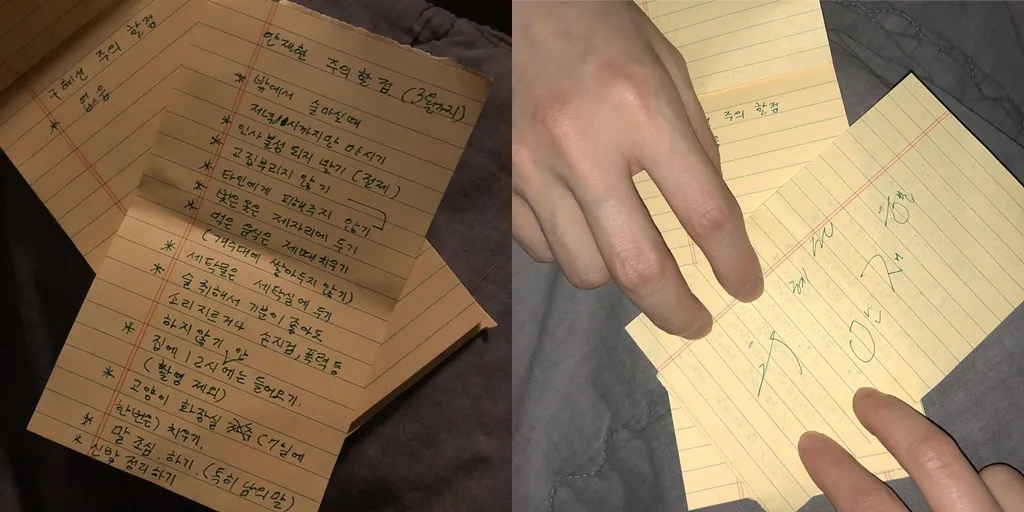 구혜선 주의 할점
* 없음
안재현 주의 할 점
* 밖에서 술마실때
시까지만 마시기
* 인사불성 되지 말기 (절제)
* 고집부리지 않기
* 타인에게 피해주지 않기
* 벗은 옷은 제자리에 두기
* 먹은 음식은 제때 치우기
(개수대에 쌓아두지 않기)
* 세탁물은 세탁실에 두기
* 술 취해서 기분이 좋아도
소리지르거나 손지검, 폭력 등
하지 않기
* 집에 12시 안에는 들어오기.
(촬영 제외)
* 고양이 화장실 (7일에
한번은) 치우기.
* 말 조심 하기. (특히 남의 말)
* 신발 정리하기
주의 할점
안 재 현